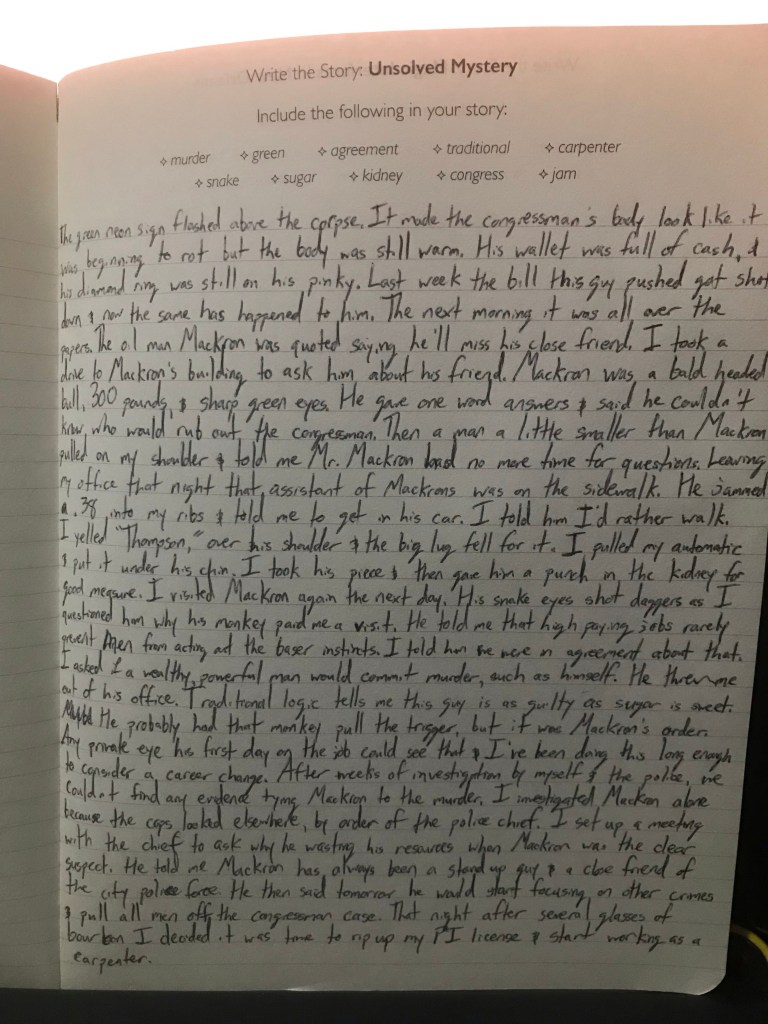 Write the Story: Unsolved Mystery
Include the following in your story:
✧ murder ✧ green ✧ agreement ✧ traditional ✧ carpenter
✧ snake ✧ sugar ✧ kidney ✧ congress ✧ jam
The green neon sign flashed above the corpse. It made the congressman's body look like it
was beginning to rot but the body was still warm. His wallet was full of cash, &
his diamond ring was still on his pinky. Last week the bill this guy pushed got shot
down & now the same has happened to him. The next morning it was all over the
papers. The oil man Mackron was quoted saying he'll miss his close friend. I took a
drive to Mackron's building to ask him about his friend. Mackron was a bald headed
bull, 300 pounds, & sharp green eyes. He gave one word answers & said he couldn't
know who would rub out the congressman. Then a man a little smaller than Mackron
pulled on my shoulder & told me Mr. Mackron had no more time for questions. Leaving
my office that night that assistant of Mackrons was on the sidewalk. He jammed
a .38 into my ribs & told me to get in his car. I told him I'd rather walk.
I yelled "Thompson," over his shoulder & the big lug fell for it. I pulled my automatic
& put it under his chin. I took his piece & then gave him a punch in the kidney for
good measure. I visited Mackron again the next day. His snake eyes shot daggers as I
questioned him why his monkey paid me a visit. He told me that high paying jobs rarely
prevent men from acting out the baser instincts. I told him we were in agreement about that.
I asked if a wealthy, powerful man would commit murder, such as himself. He threw me
out of his office. Traditional logic tells me this guy is as guilty as sugar is sweet.
He probably had that monkey pull the trigger, but it was Mackron's order.
Any private eye his first day on the job could see that & I've been doing this long enough
to consider a career change. After weeks of investigation by myself & the police, we
couldn't find any evidence tying Mackron to the murder. I investigated Mackron alone
because the cops looked elsewhere, by order of the police chief. I set up a meeting
with the chief to ask why he wasting his resources when Mackron was the clear
suspect. He told me Mackron has always been a stand up guy & a cloe friend of
the city police force. He then said tomorrow he would start focusing on other crimes
& pull all men off the congressman case. That night after several glasses of
bourbon I decided it was time to rip up my PI license & start working as a
carpenter.